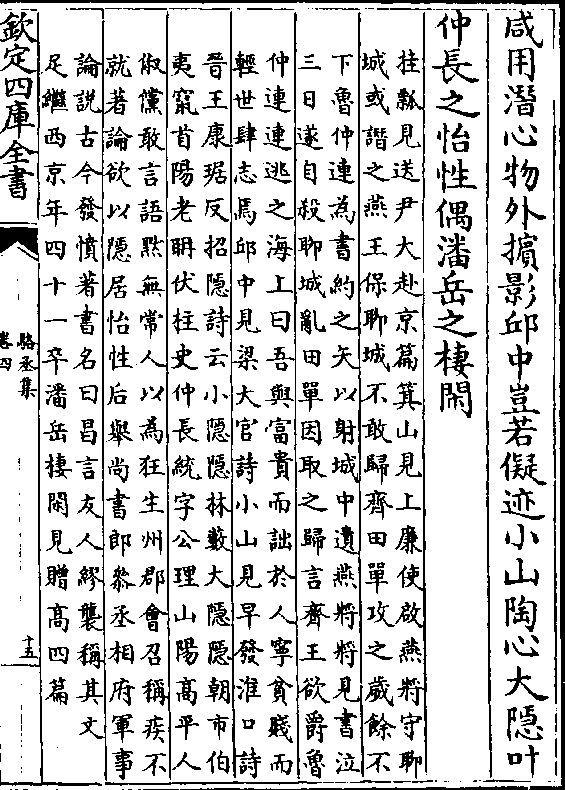 咸用潛心物外擯影邱中豈若儗迹小山陶心大隱叶
仲長之怡性偶潘岳之棲閑
挂瓢見送尹大赴京篇箕山見上廉使啟燕將守聊
城或譖之燕王保聊城不敢歸齊田單攻之歲餘不
下魯仲連為書約之矢以射城中遺燕將將見書泣
三日遂自殺聊城亂田單因取之歸言齊王欲爵魯
仲連連逃之海上曰吾與富貴而詘於人寧貧賤而
輕世肆志焉邱中見梁大官詩小山見早發淮口詩
晉王康琚反招隱詩云小隱隱林藪大隱隱朝市伯
夷竄首陽老聃伏柱史仲長統字公理山陽高平人
俶儻敢言語黙無常人以為狂生州郡會召稱疾不
就著論欲以隱居怡性后舉尚書郎叅丞相府軍事
論說古今發憤著書名曰昌言友人繆襲稱其文
足繼西京年四十一卒潘岳棲閑見贈高四篇
欽定四庫全書
駱丞集
卷四
十五